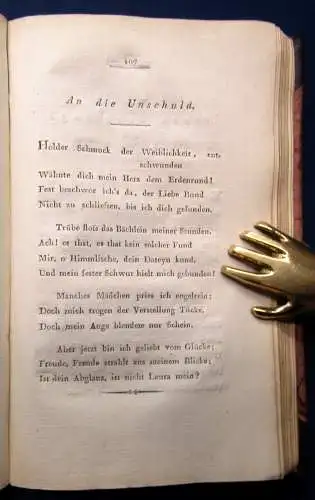 107
An die Unschuld.
Holder Schmuck der Weiblichkeit, ent-
schwunden
Wähnte dich mein Herz dem Erdenrund!
Fest beschwor ich's da, der Liebe Bund
Nicht zu schliefsen, bis ich dich gefunden.
Trübe floss das Bächlein meiner Stunden.
Ach! es that, es that kein solcher Fund
Mir, o Himmlische, dein Daseyn kund,
Und mein fester Schwur hielt mich gebunden!
Manches Mädchen pries ich engelrein;
Doch mich trogen der Verstellung Tücke,
Doch mein Auge blendete nur Schein.
Aber jetzt bin ich geliebt vom Glücke;
Freude, Freude strahlt aus meinem Blicke;
Ist dein Abglanz, ist nicht Laura mein?